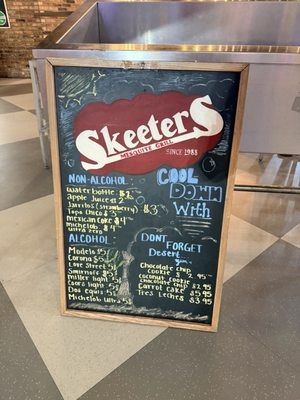 Skeeters
MESQUITE GRILL
SINCE 1983
NON-ALCOHOL
Water bottle $2
apple Juice $2
Jarritos (strawberry) $3
Topo Chico $3
mexican Coke $4
michelob $4
ultra zero
COOL
DOWN
With
ALCOHOL
Modelo $5
Corona $5
Love Street $5
Smirnoff $5
miller light $5
Coors light $5
Dos equis $5
Michelob Ultra $5
DONT
FORGET
Desert
Chocolate chip
Cookie $2.95
Coconut
chocolate chip $2.95
Carrot Cake $5.95
Tres Leches $3.95